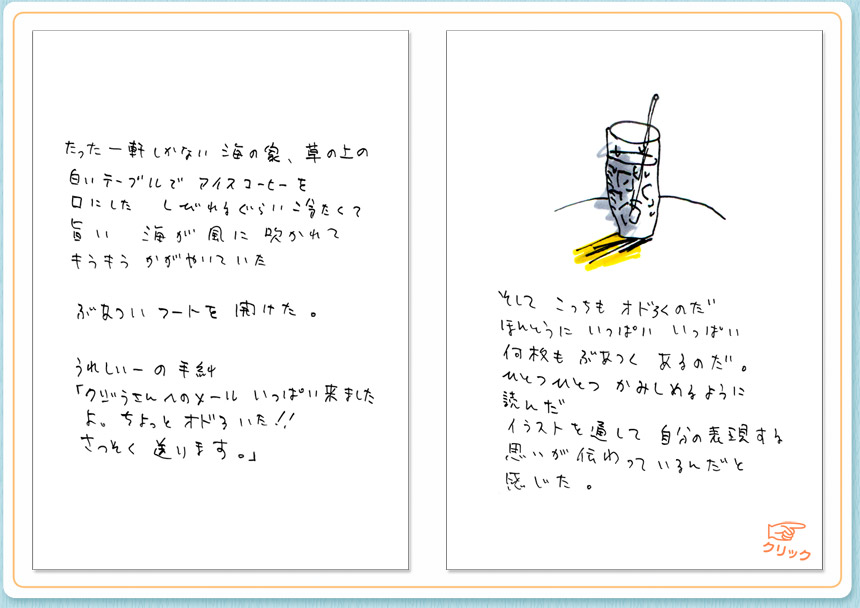 たった一軒しかない 海の家、草の上の
白いテーブルで アイスコーヒーを
口にした しびれるぐらい冷たくて
旨い 海が風に吹かれて
キラキラ かがやいていた
ぶあつい ノートを 開けた。
うれしい一の手紙
「クジラさんへのメール いっぱい来ました
よ。ちょっと オドろいた!!
さっそく 送ります。」
そして こっちも オドろくのだ
ほんとうに いっぱい いっぱい
何枚も ぶあつく あるのだ。
ひとつひとつ かみしめるように
読んだ
イラストを通して 自分の表現する
思いが伝わっているんだと
感じた。
クリック